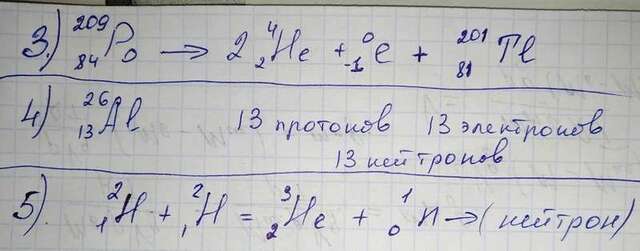 3.) ²⁰⁹₈₄Po → 2 ⁴₂He + ⁰₋₁e + ²⁰¹₈₁Tl
4) ²⁶₁₃Al 13 протонов 13 электронов
13 нейтронов
5). ²₁H + ²₁H = ³₂He + ¹₀n → (нейтрон)